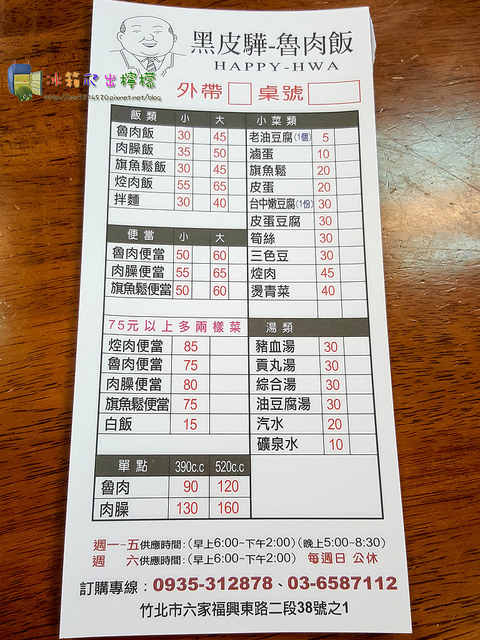 黑皮驊-魯肉飯
HAPPY-HWA
冰箱爬出檸檬
外帶 桌號
飯類 小 大
魯肉飯 30 45
肉臊飯 35 50
旗魚鬆飯 30 45
焢肉飯 55 65
拌麵 30 40
便當 小 大
魯肉便當 50 60
肉臊便當 55 65
旗魚鬆便當 50 60
75元以上多兩樣菜
焢肉便當 85
魯肉便當 75
肉臊便當 80
旗魚鬆便當 75
白飯 15
單點 390c.c 520c.c
魯肉 90 120
肉臊 130 160
小菜類
老油豆腐(1個) 5
滷蛋 10
旗魚鬆 20
皮蛋 20
台中嫩豆腐(1份) 30
皮蛋豆腐 30
筍絲 30
三色豆 30
焢肉 45
燙青菜 40
湯類
豬血湯 30
貢丸湯 30
綜合湯 30
油豆腐湯 30
汽水 20
礦泉水 10
週一~五供應時間:(早上6:00~下午2:00)(晚上5:00~8:30)
週 六供應時間:(早上6:00~下午2:00) 每週日 公休
訂購專線:0935-312878、03-6587112
竹北市六家福興東路二段38號之1